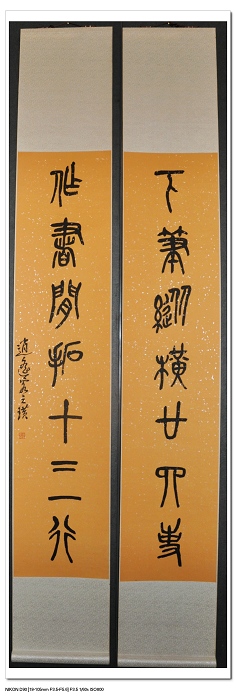 下筆縱橫廿四史
作書閒拓十三行
逍遙
NIKON D90 [18-105mm F3.5-F5.6] F3.5 1/60s ISO800